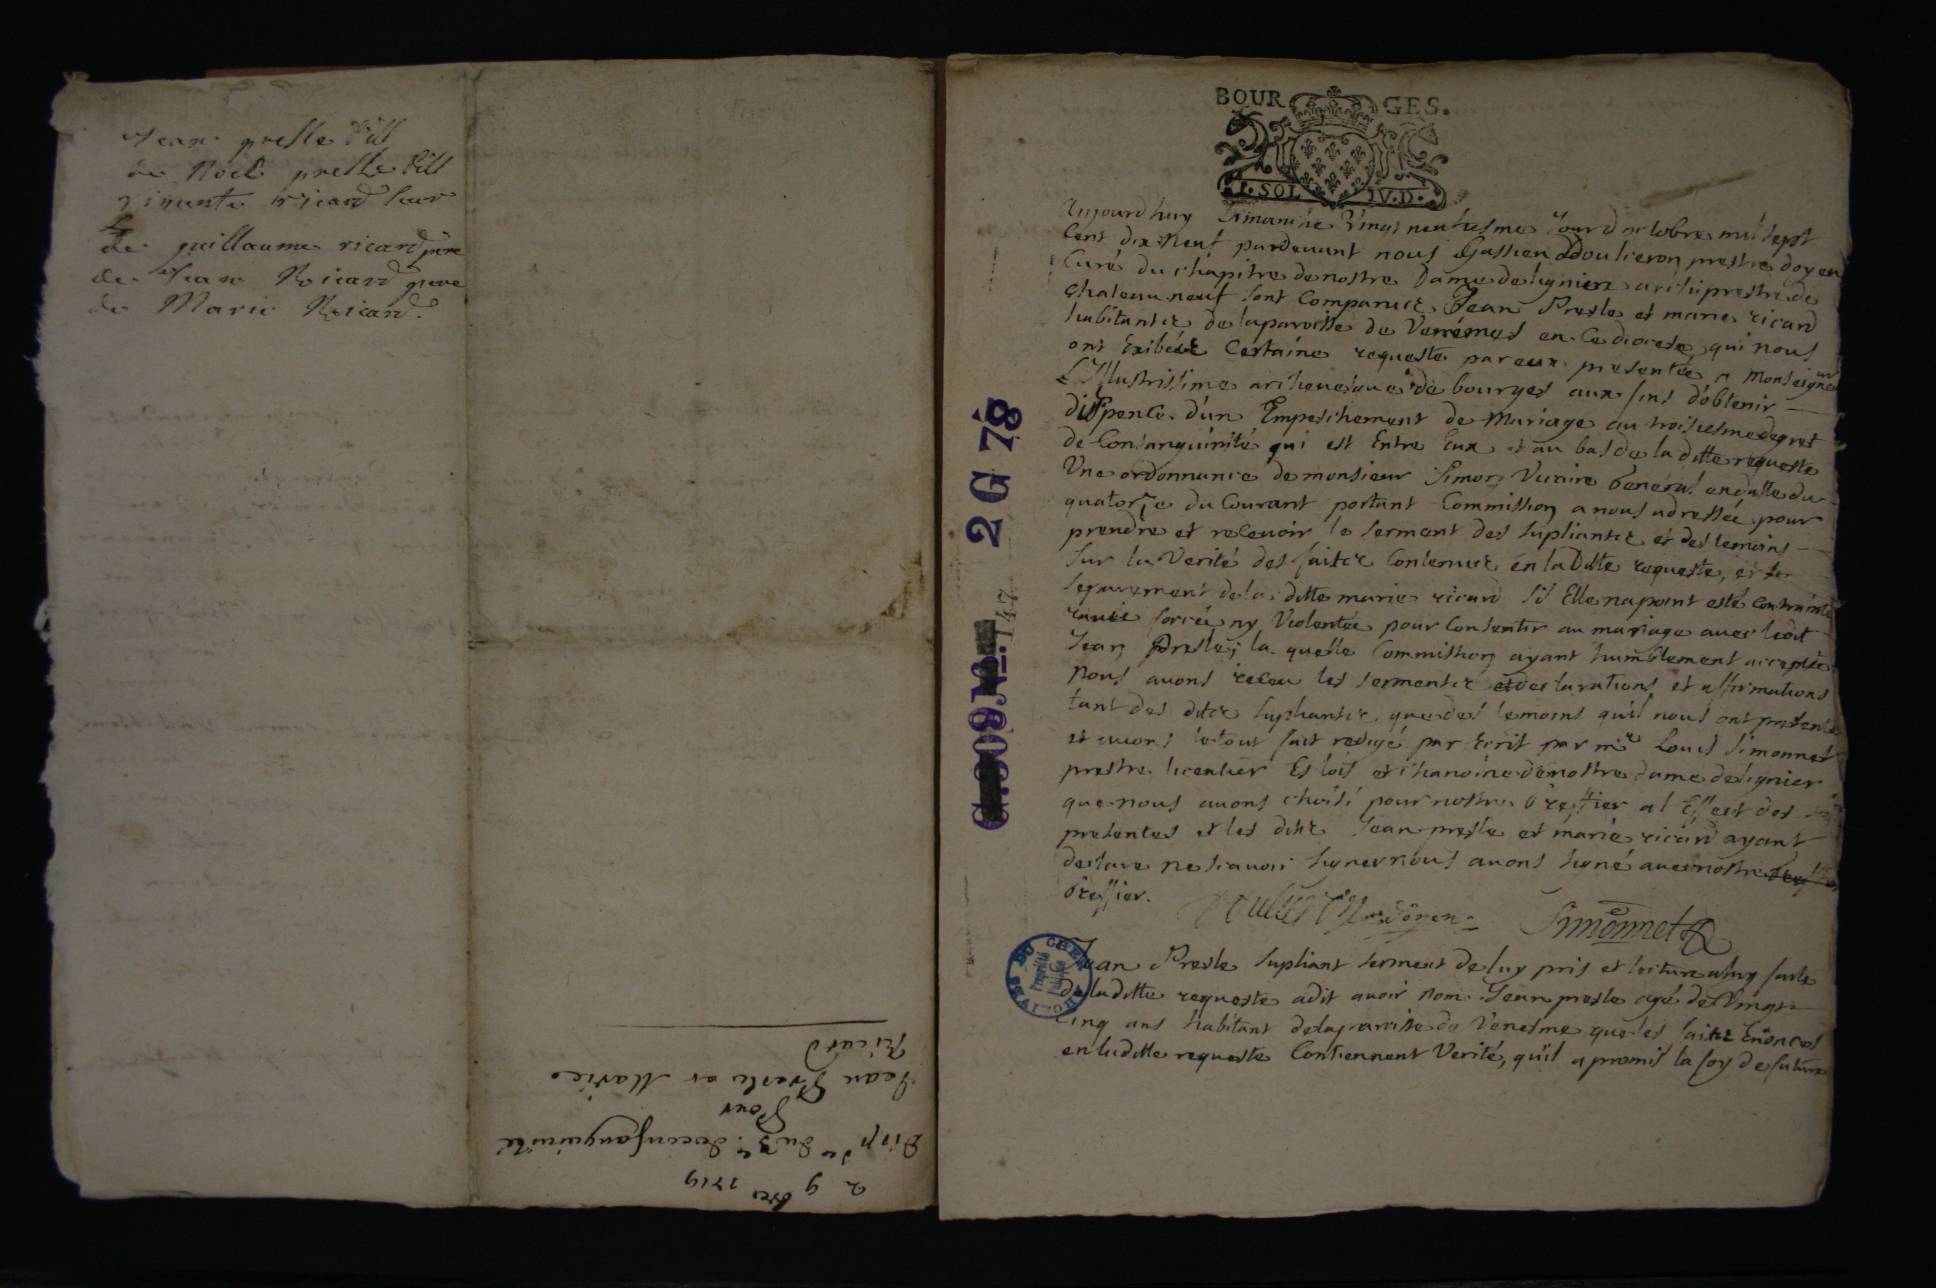 Jean presle fill
de Noel presle fill
de guillaume ricard pere
de Jean Ricard pere
de Marie Ricard.
2 9bre 1719
Disp de du 3e. de consanguinité
Pour
Jean Presle et Marie
Ricard
2 G 78
147
BOURGES.
I. SOL IV. D.
Aujourdhuy dimanche vingt neufiesme jour doctobre mil sept
cent dix neuf pardevant nous Gassien Doulieron prestre doyen
curé du chapitre de nostre Dame de lignier archiprestre de
chateauneuf sont comparus Jean Presle et marie ricard
habitants de la paroisse de Venémes en ce diocese, qui nous
ont exibéé certaine requeste par eux presentée a Monseigneur
L'Illustrissime archevesque de bourges aux fins d'obtenir
disspence d'un Empeschement de Mariage au troisiesme degret
de Consanguinité qui est Entre Eux et au bas de la ditte requeste
Une ordonnance de monsieur Simon Vicaire General en datte du
quatorze du Courant portant Commission a nous adressée pour
prendre et recevoir le serment des supliants et des temoins
sur la Verité des faits contenus en la Ditte requeste, et
separement de la ditte marie ricard si Elle na point esté contrainte
ravie forcée ny Violentée pour consentir au mariage avec ledit
Jean Presle; la quelle Commission ayant humblement acceptée
Nous avons receu les serments declarations et affirmations
tant des dits supliants que des temoins qu'il nous ont presenté
et avons le tout fait redigé par Ecrit par mre Louis Simonnet
prestre licentier Es loix et chanoine de nostre dame de lignier
que nous avons choisi pour nostre Greffier a l'Effect des
presentes et les dits Jean presle et marie ricard ayant
declare ne scavoir signer nous avons signé avec nostre
Greffier.
doyen Simonnet
Jean Presle supliant serment de luy pris et lecture a luy faite
de la ditte requeste a dit avoir nom Jean presle agé de Vingt
cinq ans habitant de la paroisse de Venesme que les faits Enoncés
en la ditte requeste Contiennent Verité, qu'il a promis la foy de future
ARCHIVES DU CHER
Propriété Publique